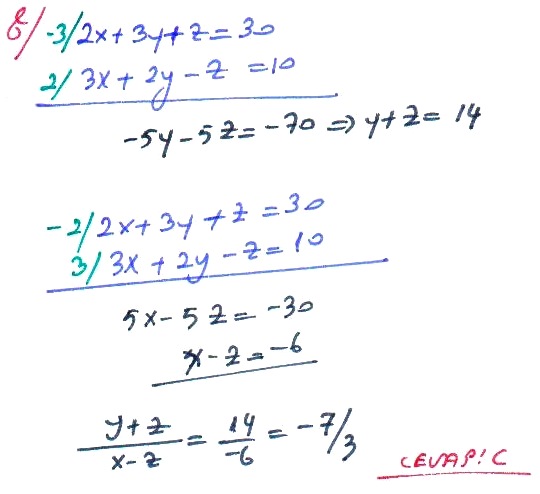 8/ -3/ 2x + 3y + z = 30
2/ 3x + 2y - z = 10
-5y - 5z = -70 ⇒ y + z = 14
-2/ 2x + 3y + z = 30
3/ 3x + 2y - z = 10
5x - 5z = -30
x - z = -6
y+z/x-z = 14/-6 = -7/3
CEVAP: C